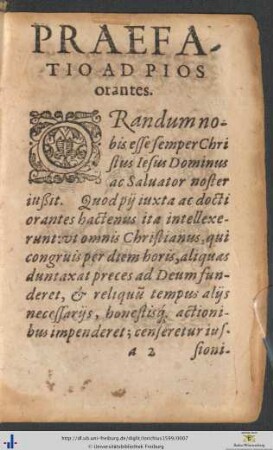 PRAEFA-
TIO AD PIOS
orantes.
ORandum no-
bis esse semper Chri
stius Iesus Dominus
ac Saluator noster
iussit. Quod pij iuxta ac docti
orantes hactenus ita intellexe-
runt: vt omnis Christianus, qui
congruis per diem horis, aliquas
duntaxat preces ad Deum fun-
deret, & reliquū tempus alijs
necessarijs, honestisq́; actioni-
bus impenderet; censeretur ius-
a 2 sioni-
http://dl.ub.uni-freiburg.de/diglit/brechtus1599/0007
© Universitätsbibliothek Freiburg